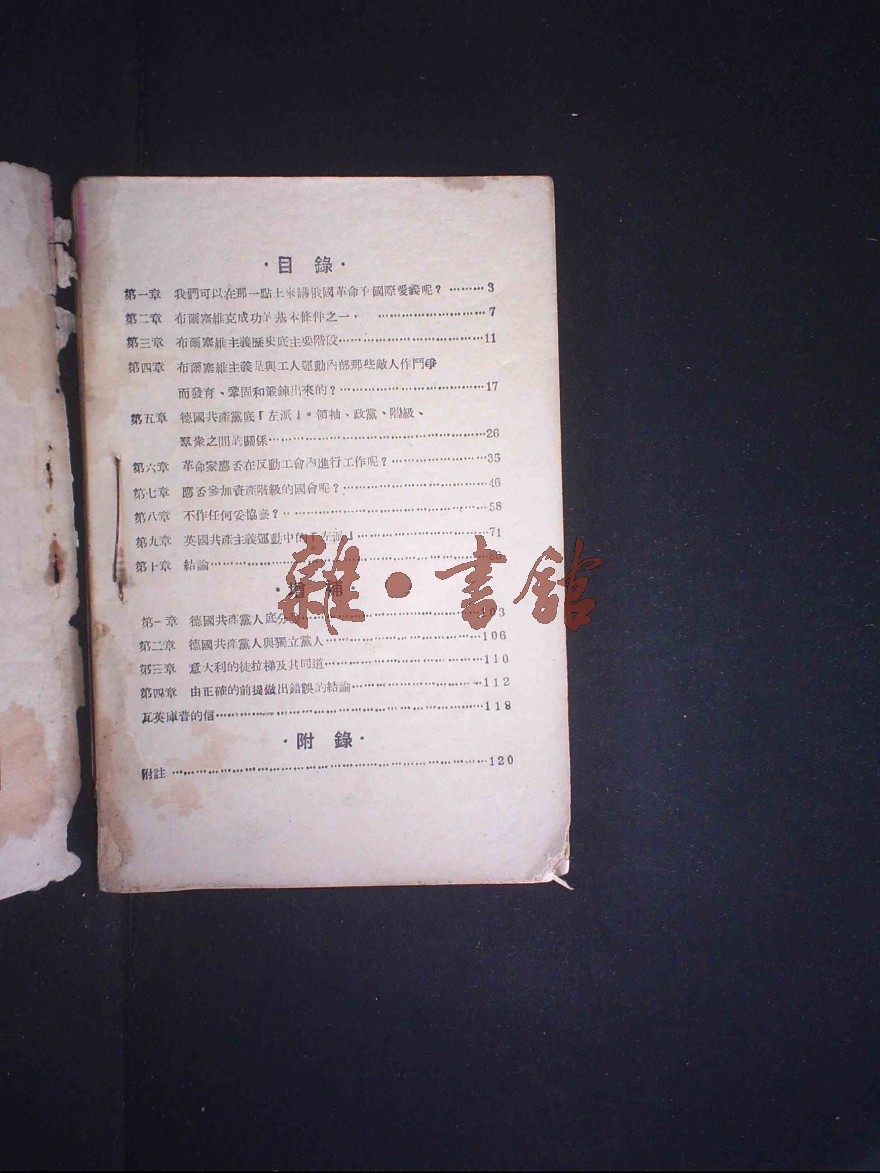 ·目 錄·
第一章 我們可以在那一點上來講俄國革命有國際意義呢？………3
第二章 布爾塞維克成功的基本條件之一· …………………7
第三章 布爾塞維主義歷史底主要階段…………………11
第四章 布爾塞維主義是與工人運動內部那些敵人作鬥爭
而發育、鞏固和鍛鍊出來的？…………………17
第五章 德國共產黨底「左派」。領袖、政黨、階級、
羣衆之間的關係…………………26
第六章 革命家應否在反動工會內進行工作呢？…………………35
第七章 應否參加資產階級的國會呢？…………………46
第八章 不作任何妥協麽？…………………58
第九章 英國共產主義運動中的「左派」…………………71
第十章 結論…………………
·增 補·
第一章 德國共產黨人底分裂…………………103
第二章 德國共產黨人與獨立黨人…………………106
第三章 意大利的徒拉梯及其同道…………………110
第四章 由正確的前提做出錯誤的結論…………………112
瓦英庫普的信…………………118
·附 錄·
附註…………………120
雜·書館